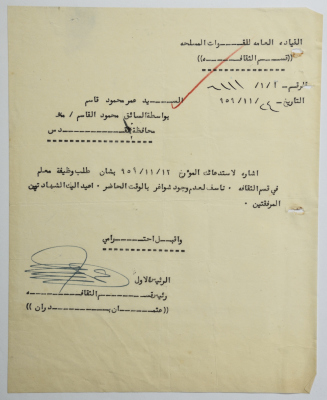 القياده العامه للقـــوات المسلحه
((قـسـم الثقافـــه))
الرقم ـ ١/٢ /
التاريخ ـ ٢٤ /١١/ ٩٥٦
الســـيد عمر محمود قاسم
بواسطة السائق محمود القاسم / 
محافظة القـــدس
اشاره لاستدعائك المؤرخ ٩٥٦/١١/١٢ بشان طلب وظيفة معلم
في قسم الثقافه ٠ ناسف لعدم وجود شواغر بالوقت الحاضر ٠ اعيد اليك الشهادتين
المرفقتين ٠
واقبل احترامي
الرئيس الاول
رئيس قسـم الثقافـــه
((عثمـــان بـــدران))